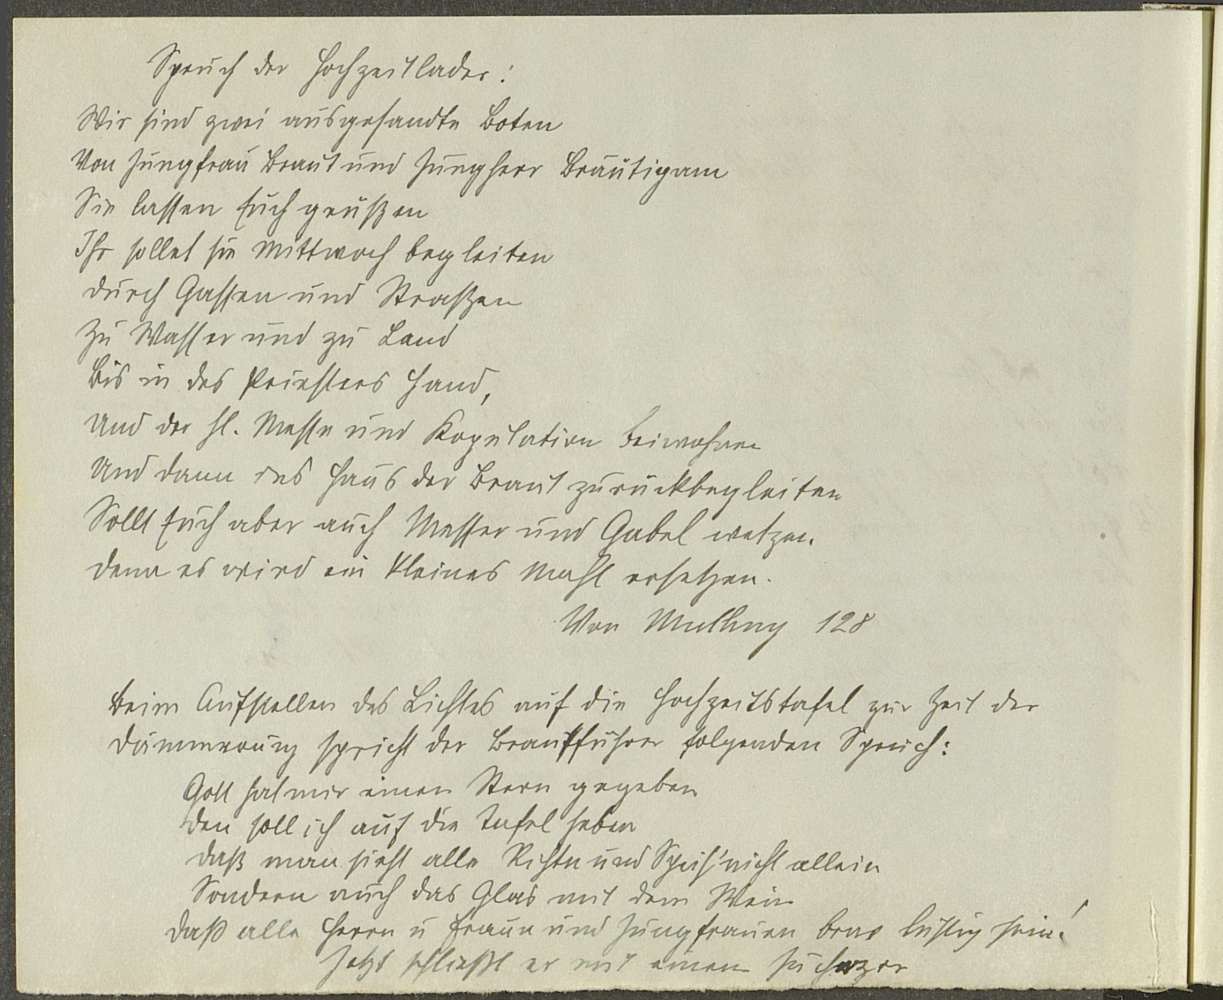 Spruch der Hochzeitlader:
Wir sind zwei ausgesandte Boten
Von Jungfrau Braut und Jungherr Bräutigam
Sie lassen Euch grüßen
Ihr sollet sie Mittwoch begleiten
durch Gassen und Straßen
Zu Wasser und zu Land
Bis in des Priesters Hand,
Und der hl. Messe und Kopulation beiwohnen
Und dann ins Haus der Braut zurückbegleiten
Sollt Euch aber auch Messer und Gabel wetzen.
denn es wird ein kleines Mahl ersetzen.
Von 128
Beim Aufstellen des Lichtes auf die Hochzeitstafel zur Zeit der
Dämmerung spricht der Brautführer folgenden Spruch:
Gott hat mir einen Stern gegeben
den soll ich auf die Tafel heben
daß man sieht alle Richte und Speis' nicht allein
Sondern auch das Glas mit dem Wein
daß alle Herrn u Fraun und Jungfrauen brav lustig sein!
Jetzt schließt er mit einem Juchezer